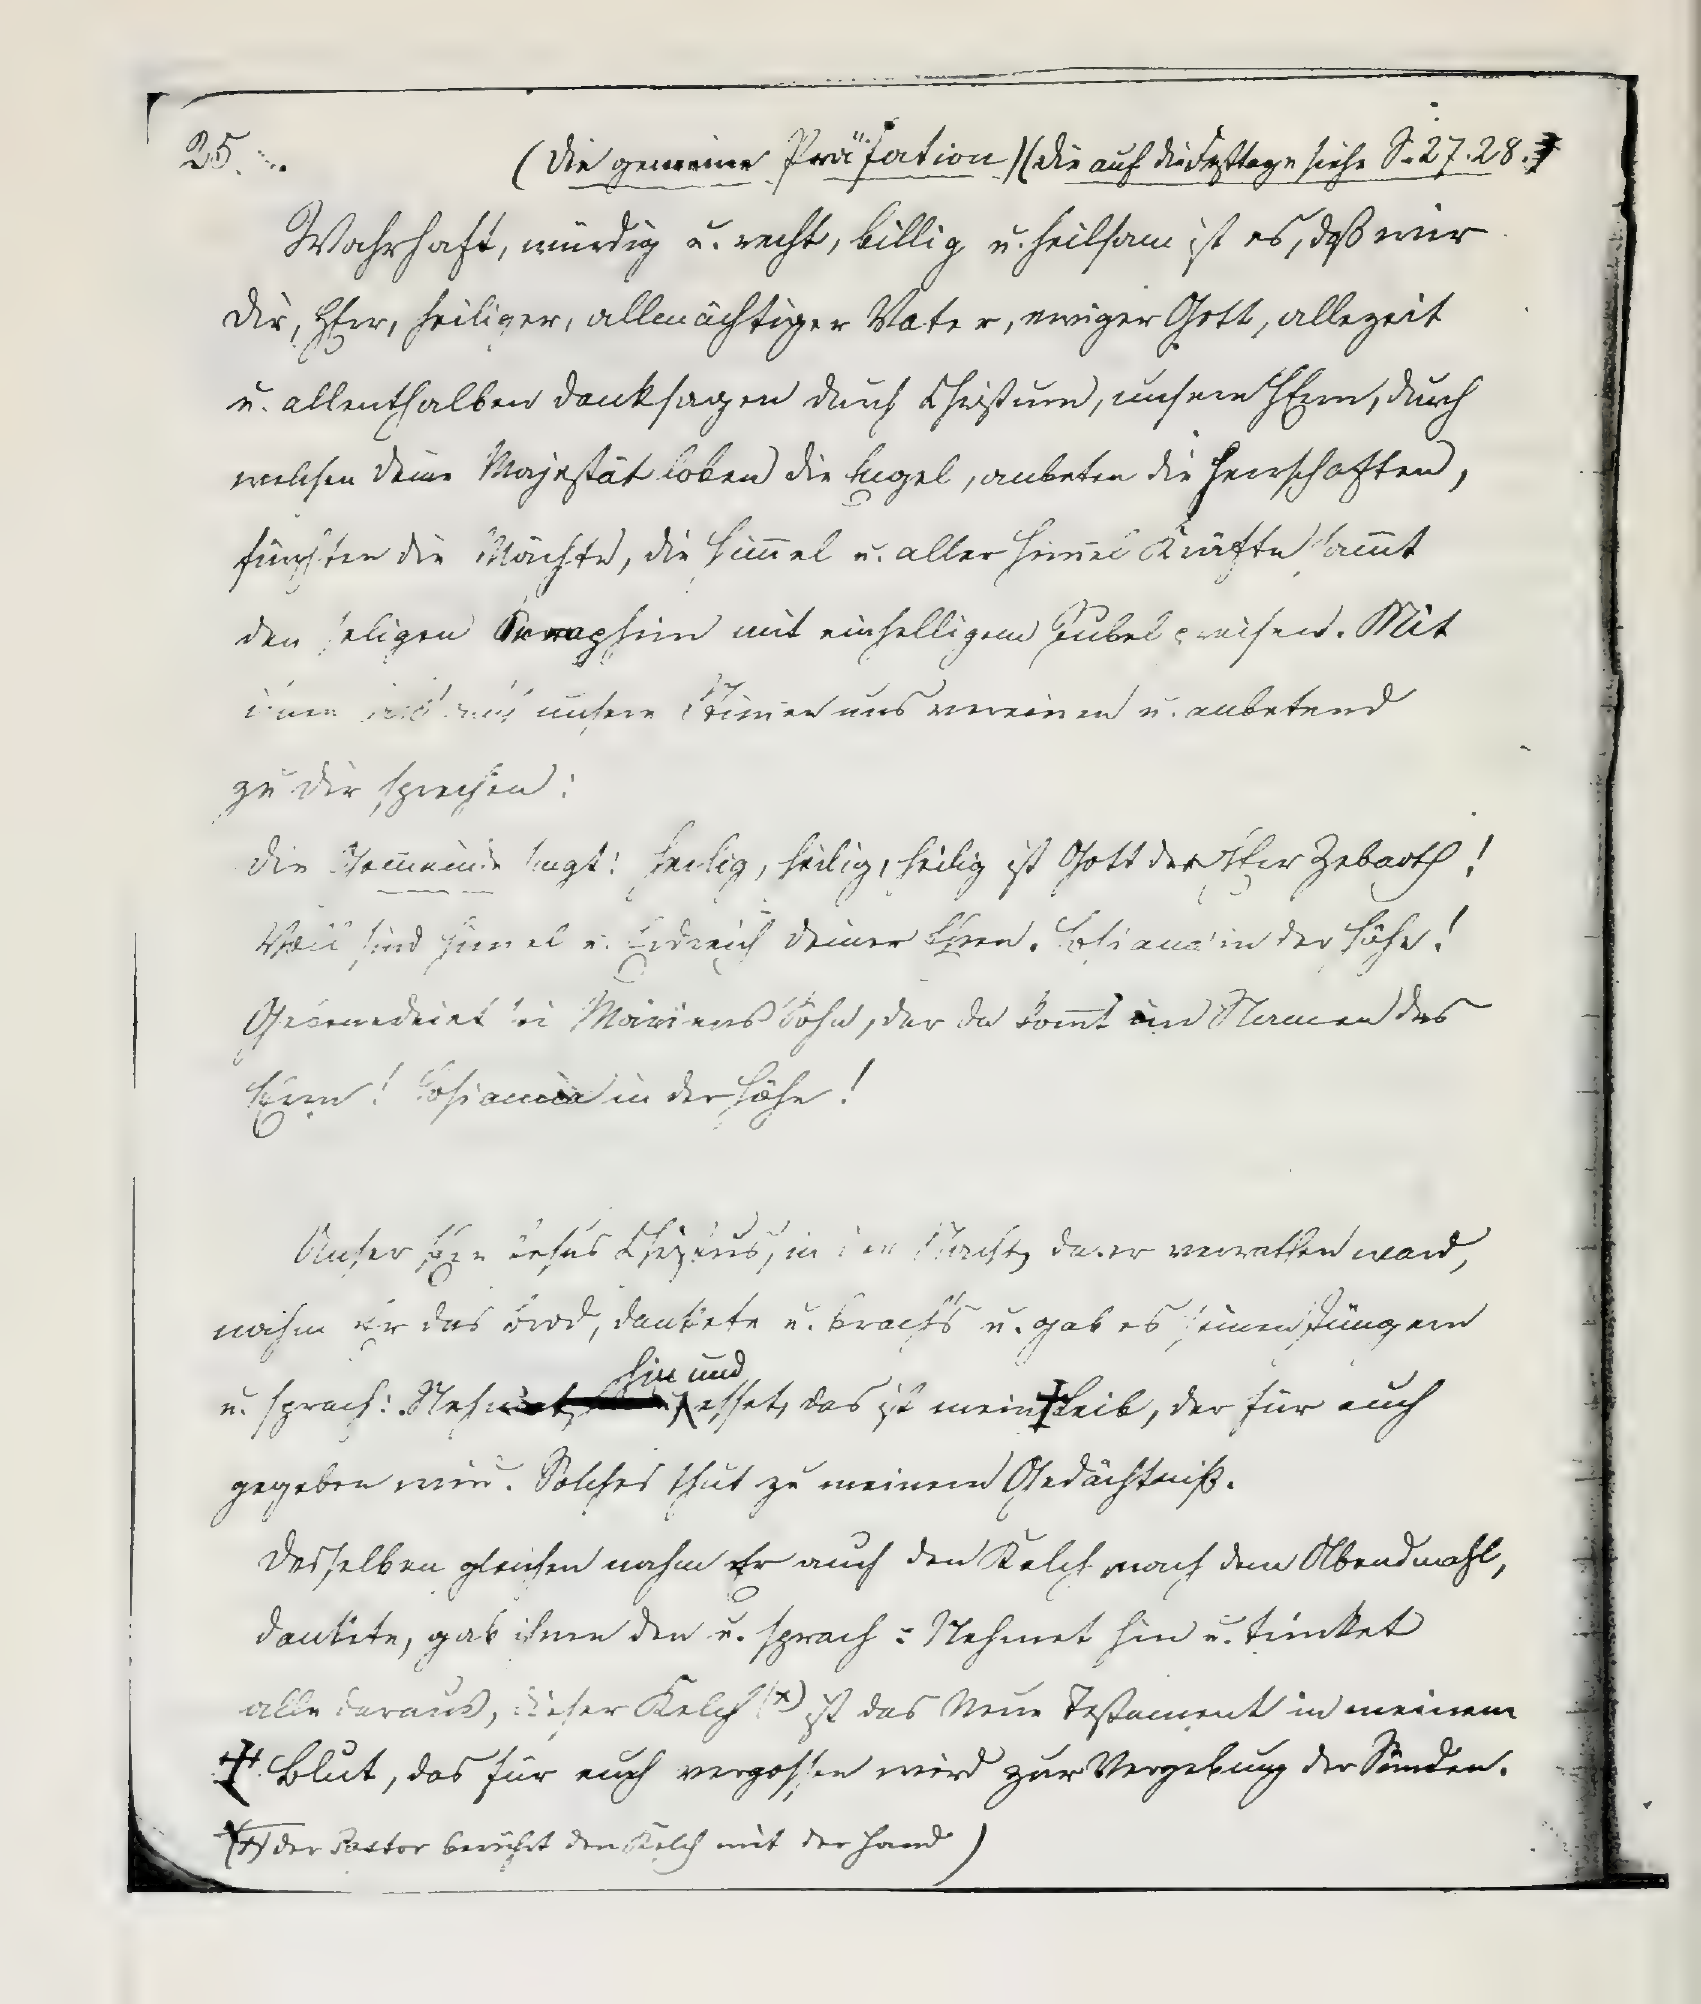 25.
(Die gemeine Präfation) (die auf die Festtage siehe S. 27. 28.)
Wahrhaft, würdig u. recht, billig u. heilsam ist es, daß wir
Dir, HErr, heiliger, allmächtiger Vater, ewiger Gott, allezeit
u. allenthalben danksagen durch Christum, unsern HErrn, durch
welchen deine Majestät loben die Engel, anbeten die Herrschaften,
fürchten die Mächte, die Him̅el u. aller Him̅el Kräfte sam̅t
den seligen Seraphim mit einhelligem Jubel preisen. Mit
ihnen laß auch unsere Stimen uns vereinen u. anbetend
zu Dir sprechen:
Die Gem̅einde singt: Heilig, heilig, heilig ist Gott der HErr Zebaoth!
Voll sind Himel u. Erdreich deiner Ehren. Hosiana in der Höhe!
Gebenedeiet sei Mariens Sohn, der da kom̅t im Namen des
HErrn! Hosianna in der Höhe!
Unser HErr Jesus Christus, in der Nacht, da er verrathen ward,
nahm Er das Brod, dankete u. brach's u. gab es seinen Jüngern
hin und
u. sprach: Nehmet, esset, das ist mein † Leib, der für euch
gegeben wird. Solches thut zu meinem Gedächtniß.
Desselben gleichen nahm Er auch den Kelch nach dem Abendmahl,
dankete, gab ihnen den u. sprach: Nehmet hin u. trinket
alle daraus, dieser Kelch (x) ist das Neue Testament in meinem
† Blut, das für euch vergossen wird zur Vergebung der Sünden.
(x) der Pastor berührt den Kelch mit der Hand)